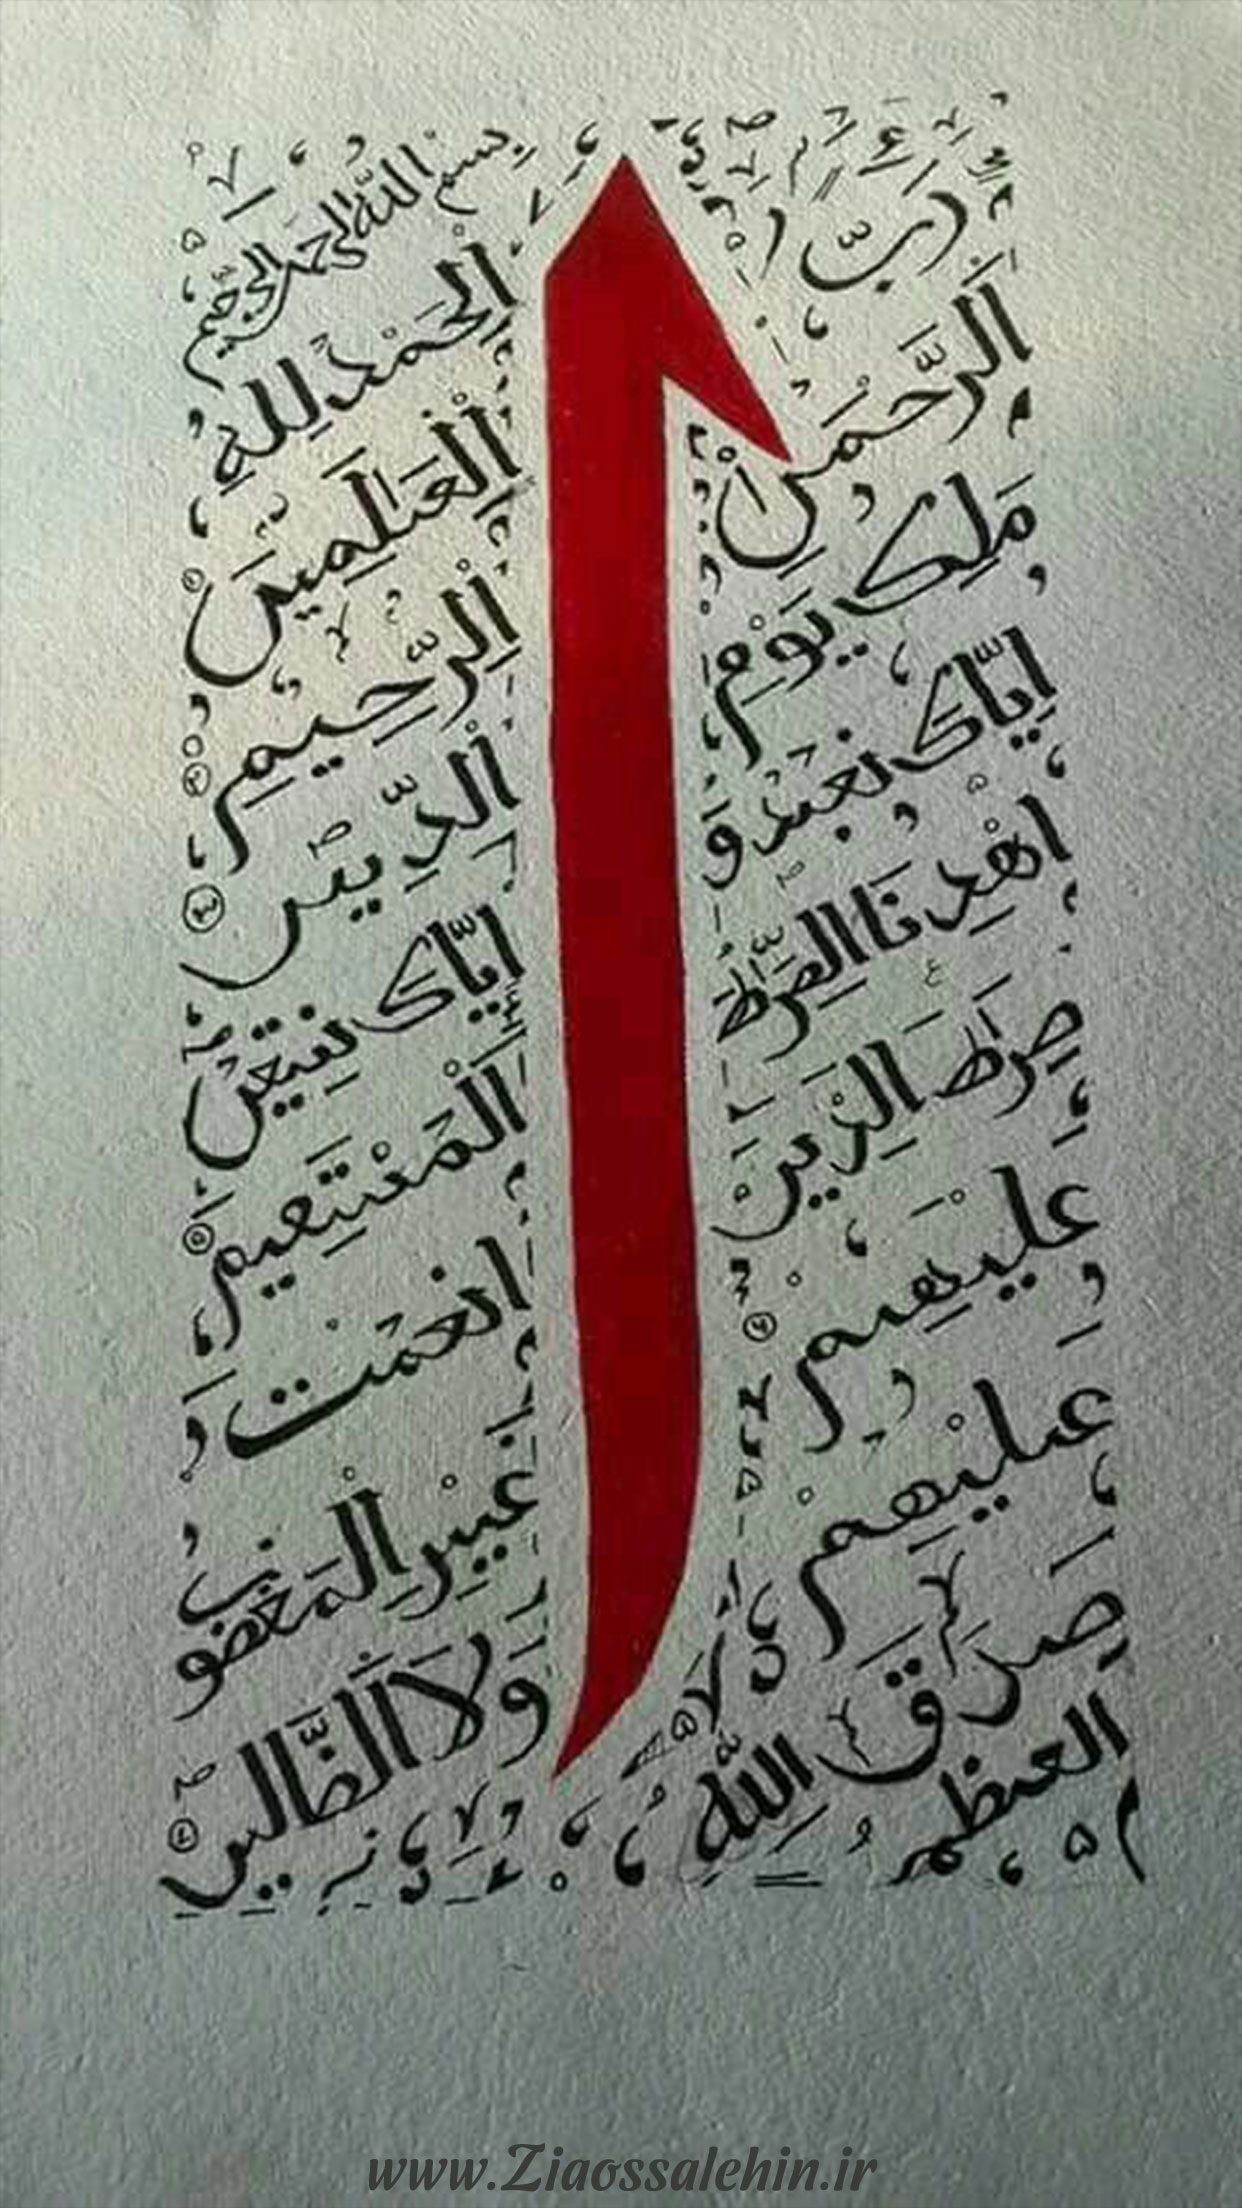 بِسْمِ اللّٰهِ الرَّحْمٰنِ الرَّحِيْمِ
اَلْحَمْدُ لِلّٰهِ
رَبِّ
الْعٰلَمِيْنَ
اَلرَّحْمٰنِ
الرَّحِيْمِ
مٰلِكِ يَوْمِ
الدِّيْنِ
اِيَّاكَ نَعْبُدُ وَ
اِيَّاكَ نَسْتَعِيْنُ
اِهْدِنَا الصِّرَاطَ
الْمُسْتَقِيْمَ
صِرَاطَ الَّذِيْنَ
اَنْعَمْتَ
عَلَيْهِمْ
غَيْرِ الْمَغْضُوْبِ
عَلَيْهِمْ
وَلَا الضَّالِّيْنَ
صَدَقَ اللّٰهُ
الْعَظِيْمُ
www.Ziaossalehin.ir